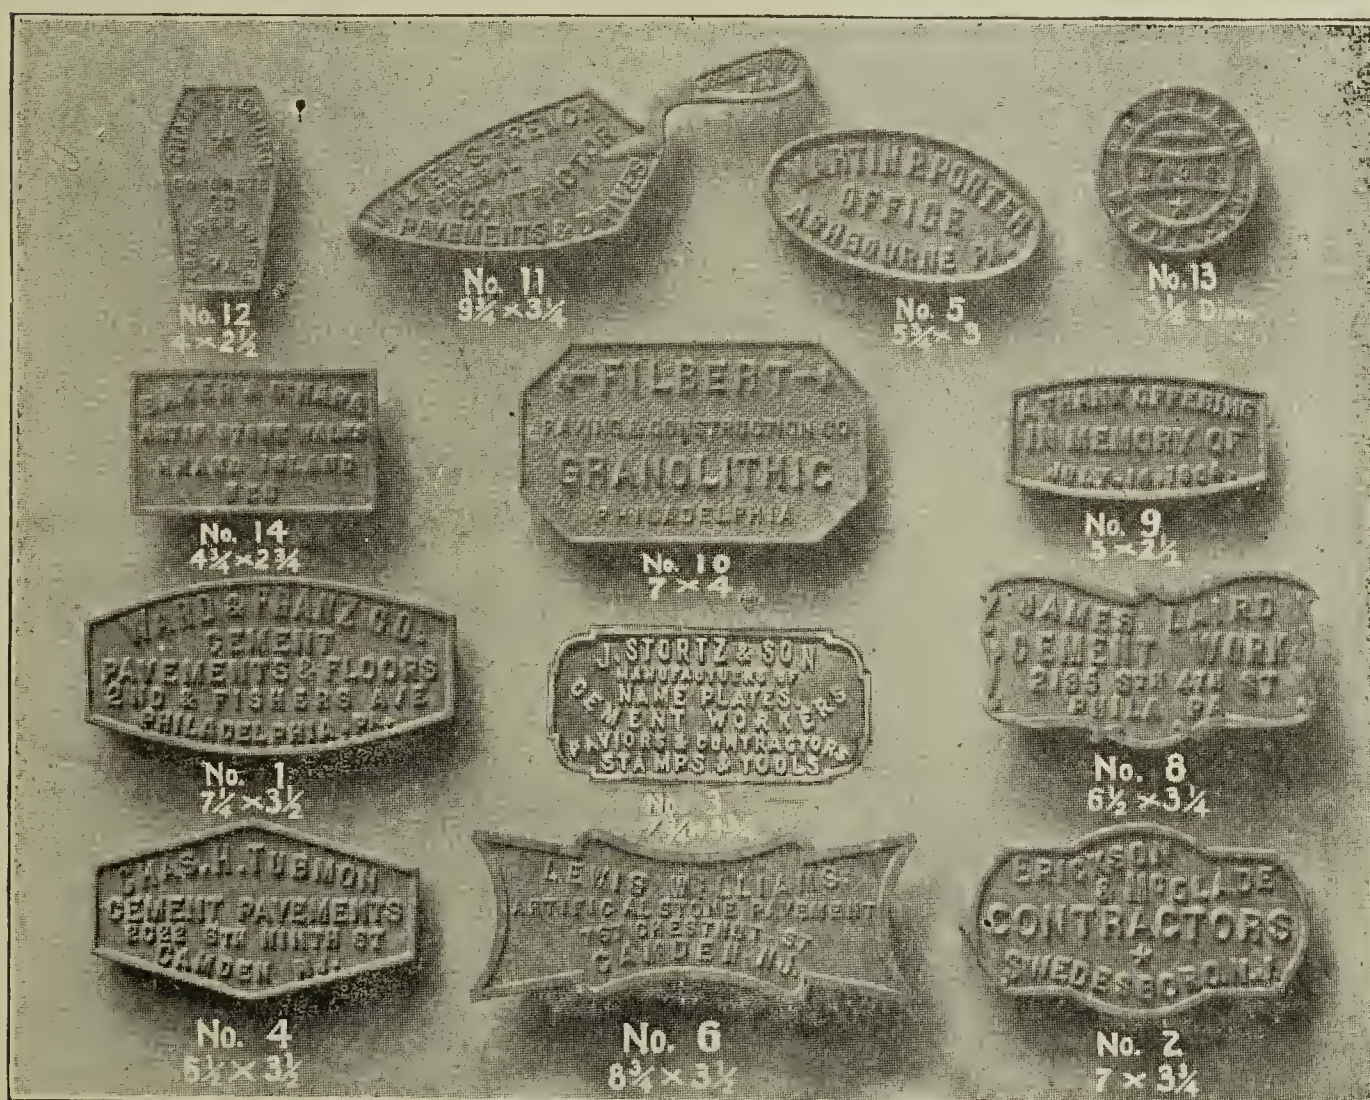 CONCRETE
CO
PA.
No. 12
4 × 2½
CONTRACTOR
PAVEMENTS & DRIVES
No. 11
9¾ × 3¼
MARTIN P. PORTER
OFFICE
ASHBOURNE PA.
No. 5
5¾ × 3
No. 13
3¼ Dia.
BAKER & O'HARA
ARTIF STONE WALKS
GRAND ISLAND
NEB
No. 14
4¾ × 2¾
FILBERT
PAVING & CONSTRUCTION CO
GRANOLITHIC
PHILADELPHIA
No. 10
7 × 4
A THANK OFFERING
IN MEMORY OF
JULY 14,
No. 9
5 × 2½
WARD & FRANZ CO.
CEMENT
PAVEMENTS & FLOORS
2ND & FISHERS AVE
PHILADELPHIA, PA.
No. 1
7¼ × 3½
J. STORTZ & SON
MANUFACTUERS OF
NAME PLATES
CEMENT WORKERS
PAVIORS & CONTRACTORS
STAMPS & TOOLS
No. 3
JAMES LAIRD
CEMENT WORK
2135 STH 4TH ST
PHILA. PA.
No. 8
6½ × 3¼
CHAS. H. TUBMON
CEMENT PAVEMENTS
STH NINTH ST
CAMDEN N.J.
No. 4
6½ × 3½
LEWIS WILLIAMS
ARTIFICAL STONE PAVEMENT
CHESTNUT ST
CAMDEN N.J.
No. 6
8¾ × 3½
ERICKSON
& McGLADE
CONTRACTORS
SWEDESBORO, N.J.
No. 2
7 × 3¾